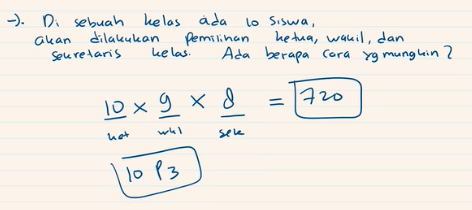 →). Di sebuah kelas ada 10 siswa,
akan dilakukan pemilihan ketua, wakil, dan
sekretaris kelas. Ada berapa cara yg mungkin?
10 × 9 × 8 = 720
ket wkl sek
10 P3